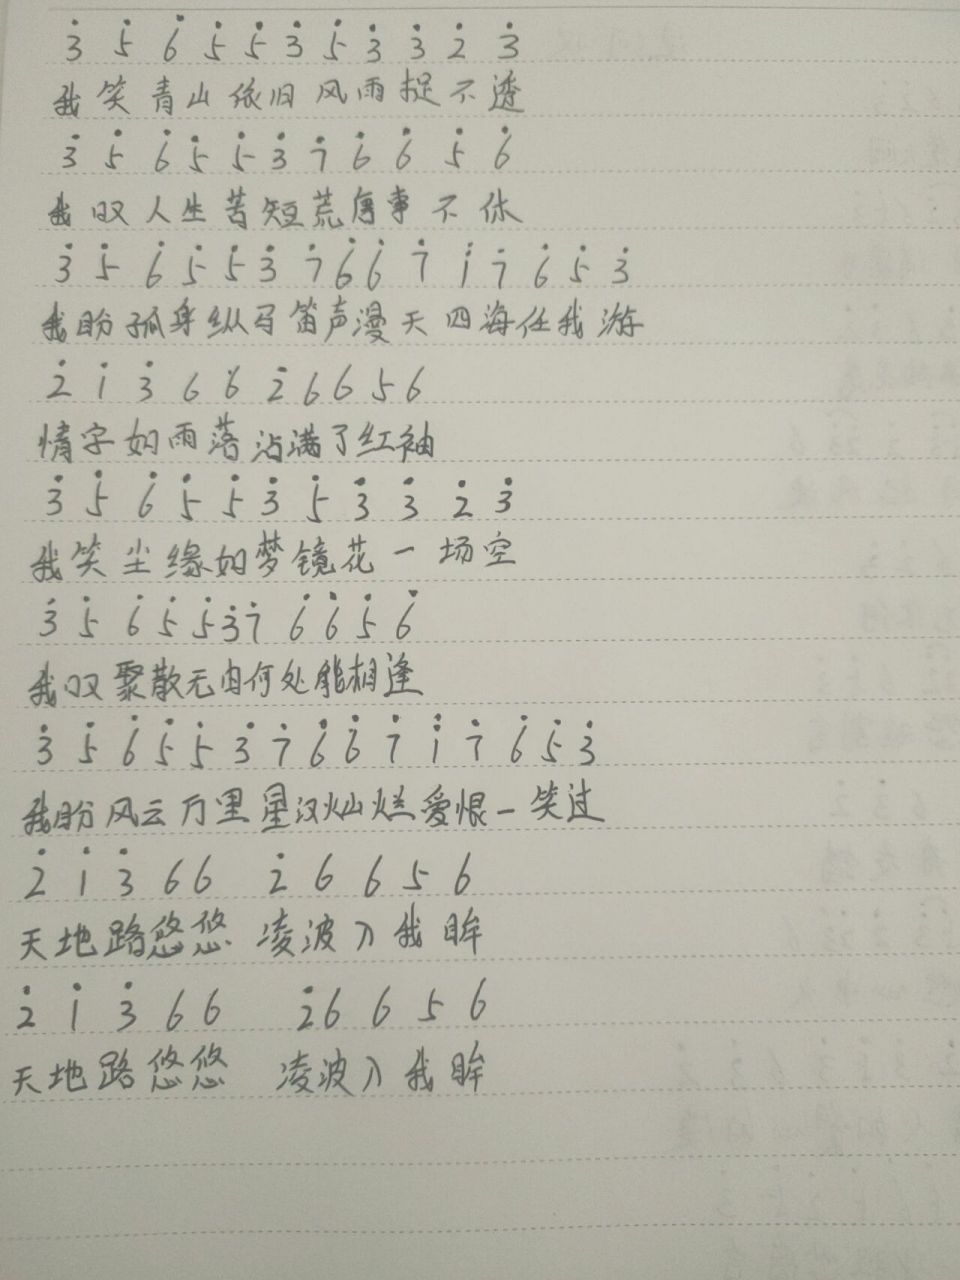 3̇ 5̇ 6̇ 5̇ 5̇ 3̇ 5̇ 3̇ 3̇ 2̇ 3̇
我笑青山依旧风雨捉不透
3̇ 5̇ 6̇ 5̇ 5̇ 3̇ 7̇ 6̇ 6̇ 5̇ 6̇
我叹人生苦短荒唐事不休
3̇ 5̇ 6̇ 5̇ 5̇ 3̇ 7̇ 6̇ 6̇ 7̇ i̇ 7̇ 6̇ 5̇ 3̇
我盼孤身纵马笛声漫天四海任我游
2̇ 1̇ 3̇ 6 6 2̇ 6 6 5 6
情字如雨落沾满了红袖
3̇ 5̇ 6̇ 5̇ 5̇ 3̇ 5̇ 3̇ 3̇ 2̇ 3̇
我笑尘缘如梦镜花一场空
3̇ 5̇ 6̇ 5̇ 5̇ 3̇ 7̇ 6̇ 6̇ 5̇ 6̇
我叹聚散无由何处能相逢
3̇ 5̇ 6̇ 5̇ 5̇ 3̇ 7̇ 6̇ 6̇ 7̇ i̇ 7̇ 6̇ 5̇ 3̇
我盼风云万里星汉灿烂爱恨一笑过
2̇ 1̇ 3̇ 6 6 2̇ 6 6 5 6
天地路悠悠 凌波入我眸
2̇ 1̇ 3̇ 6 6 2̇ 6 6 5 6
天地路悠悠 凌波入我眸